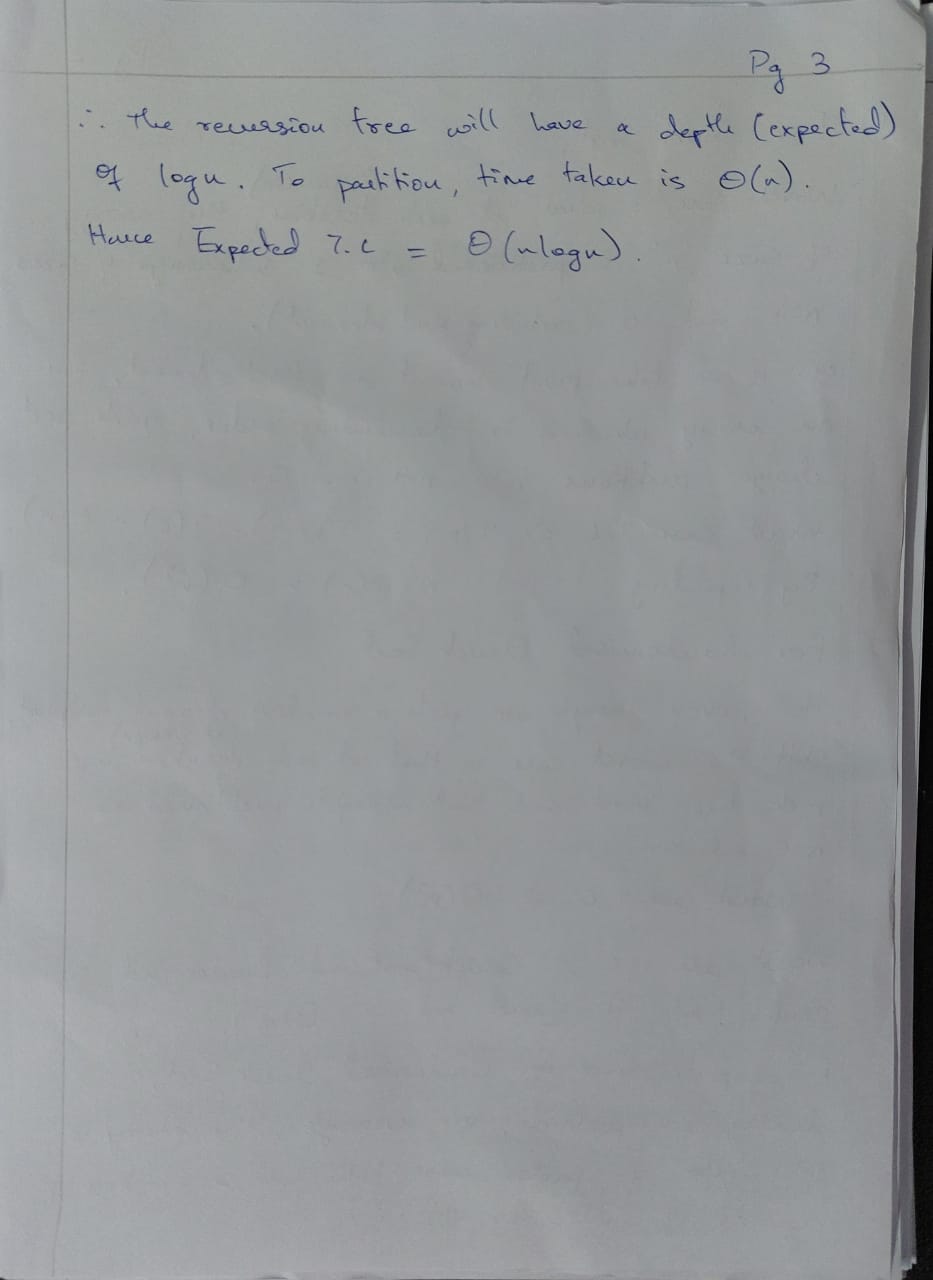 Pg 3
∴ the recursion tree will have a depth (expected)
of logn. To partition, time taken is Θ(n).
Hence Expected T.C = Θ(nlogn).